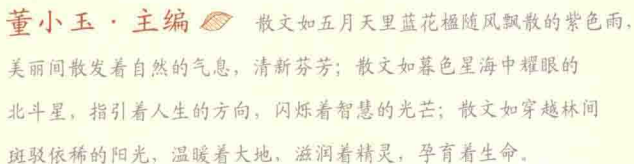 董小玉·主编 散文如五月天里蓝花楹随风飘散的紫色雨，
美丽间散发着自然的气息，清新芬芳；散文如暮色星海中耀眼的
北斗星，指引着人生的方向，闪烁着智慧的光芒；散文如穿越林间
斑驳依稀的阳光，温暖着大地，滋润着精灵，孕育着生命。